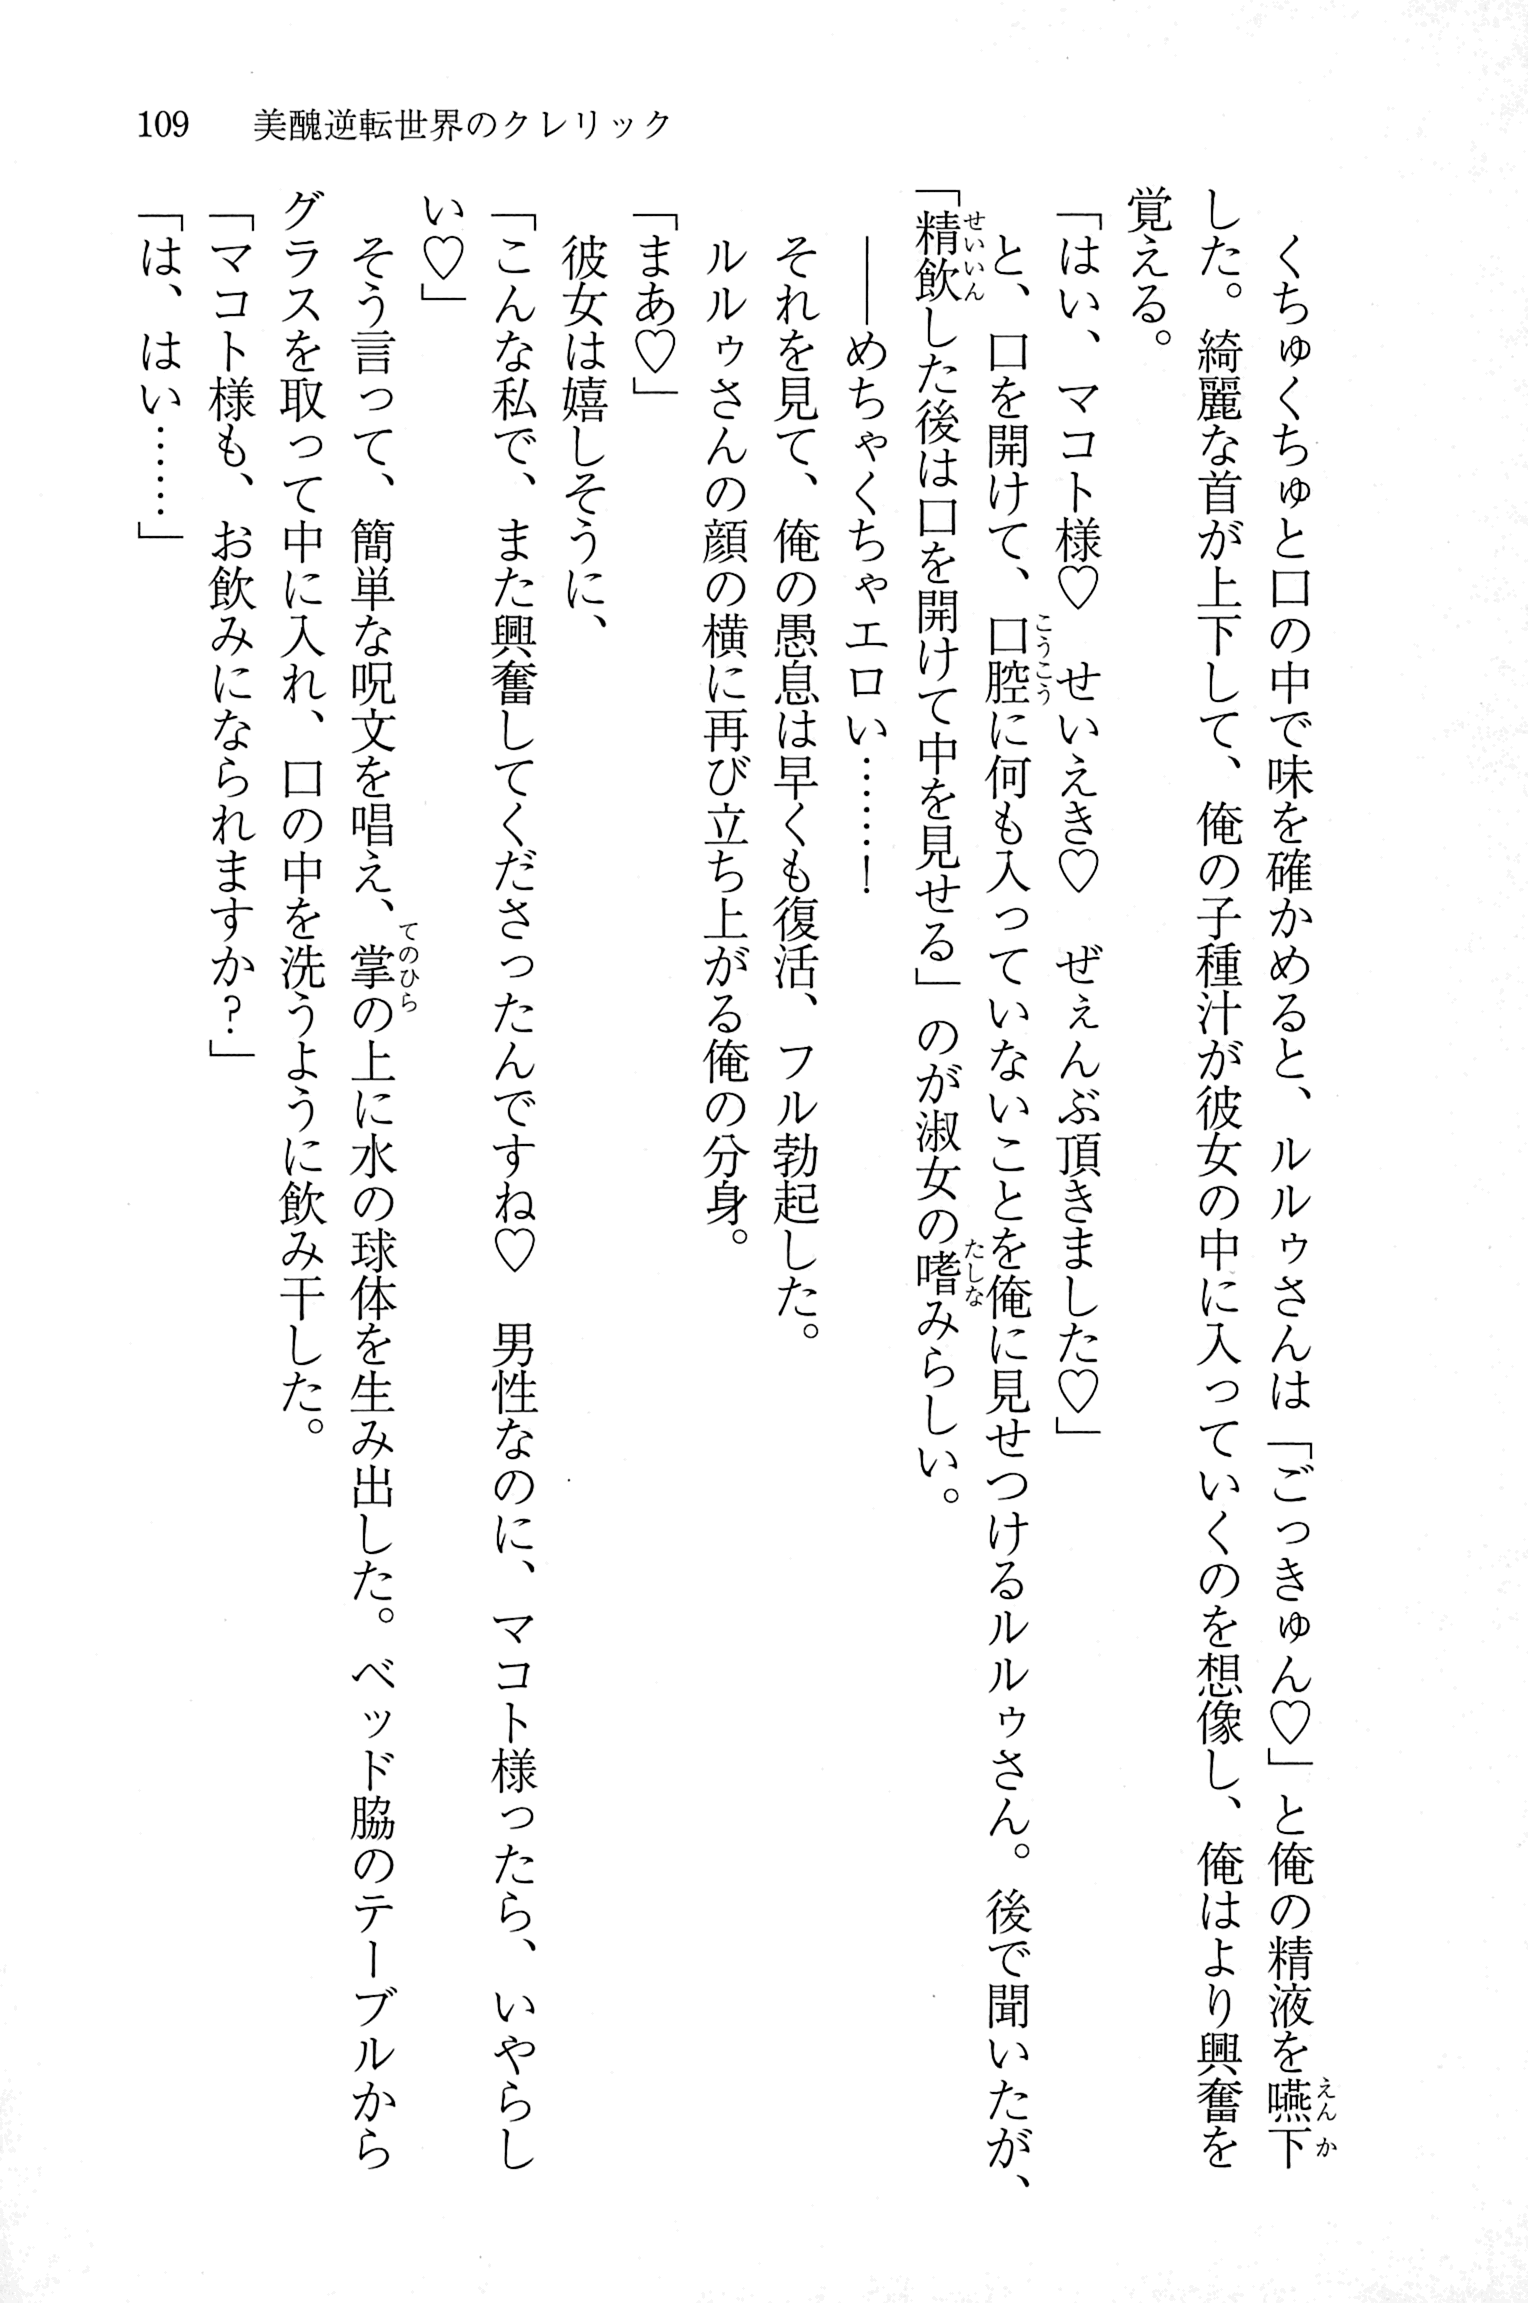 109 美醜逆転世界のクレリック
くちゅくちゅと口の中で味を確かめると、ルルゥさんは「ごっきゅん♡」と俺の精液を嚥下
した。綺麗な首が上下して、俺の子種汁が彼女の中に入っていくのを想像し、俺はより興奮を
覚える。
「はい、マコト様♡　せいえき♡　ぜぇんぶ頂きました♡」
と、口を開けて、口腔に何も入っていないことを俺に見せつけるルルゥさん。後で聞いたが、
「精飲した後は口を開けて中を見せる」のが淑女の嗜みらしい。
――めちゃくちゃエロい……！
それを見て、俺の愚息は早くも復活、フル勃起した。
ルルゥさんの顔の横に再び立ち上がる俺の分身。
「まあ♡」
彼女は嬉しそうに、
「こんな私で、また興奮してくださったんですね♡　男性なのに、マコト様ったら、いやらし
い♡」
そう言って、簡単な呪文を唱え、掌の上に水の球体を生み出した。ベッド脇のテーブルから
グラスを取って中に入れ、口の中を洗うように飲み干した。
「マコト様も、お飲みになられますか？」
「は、はい……」